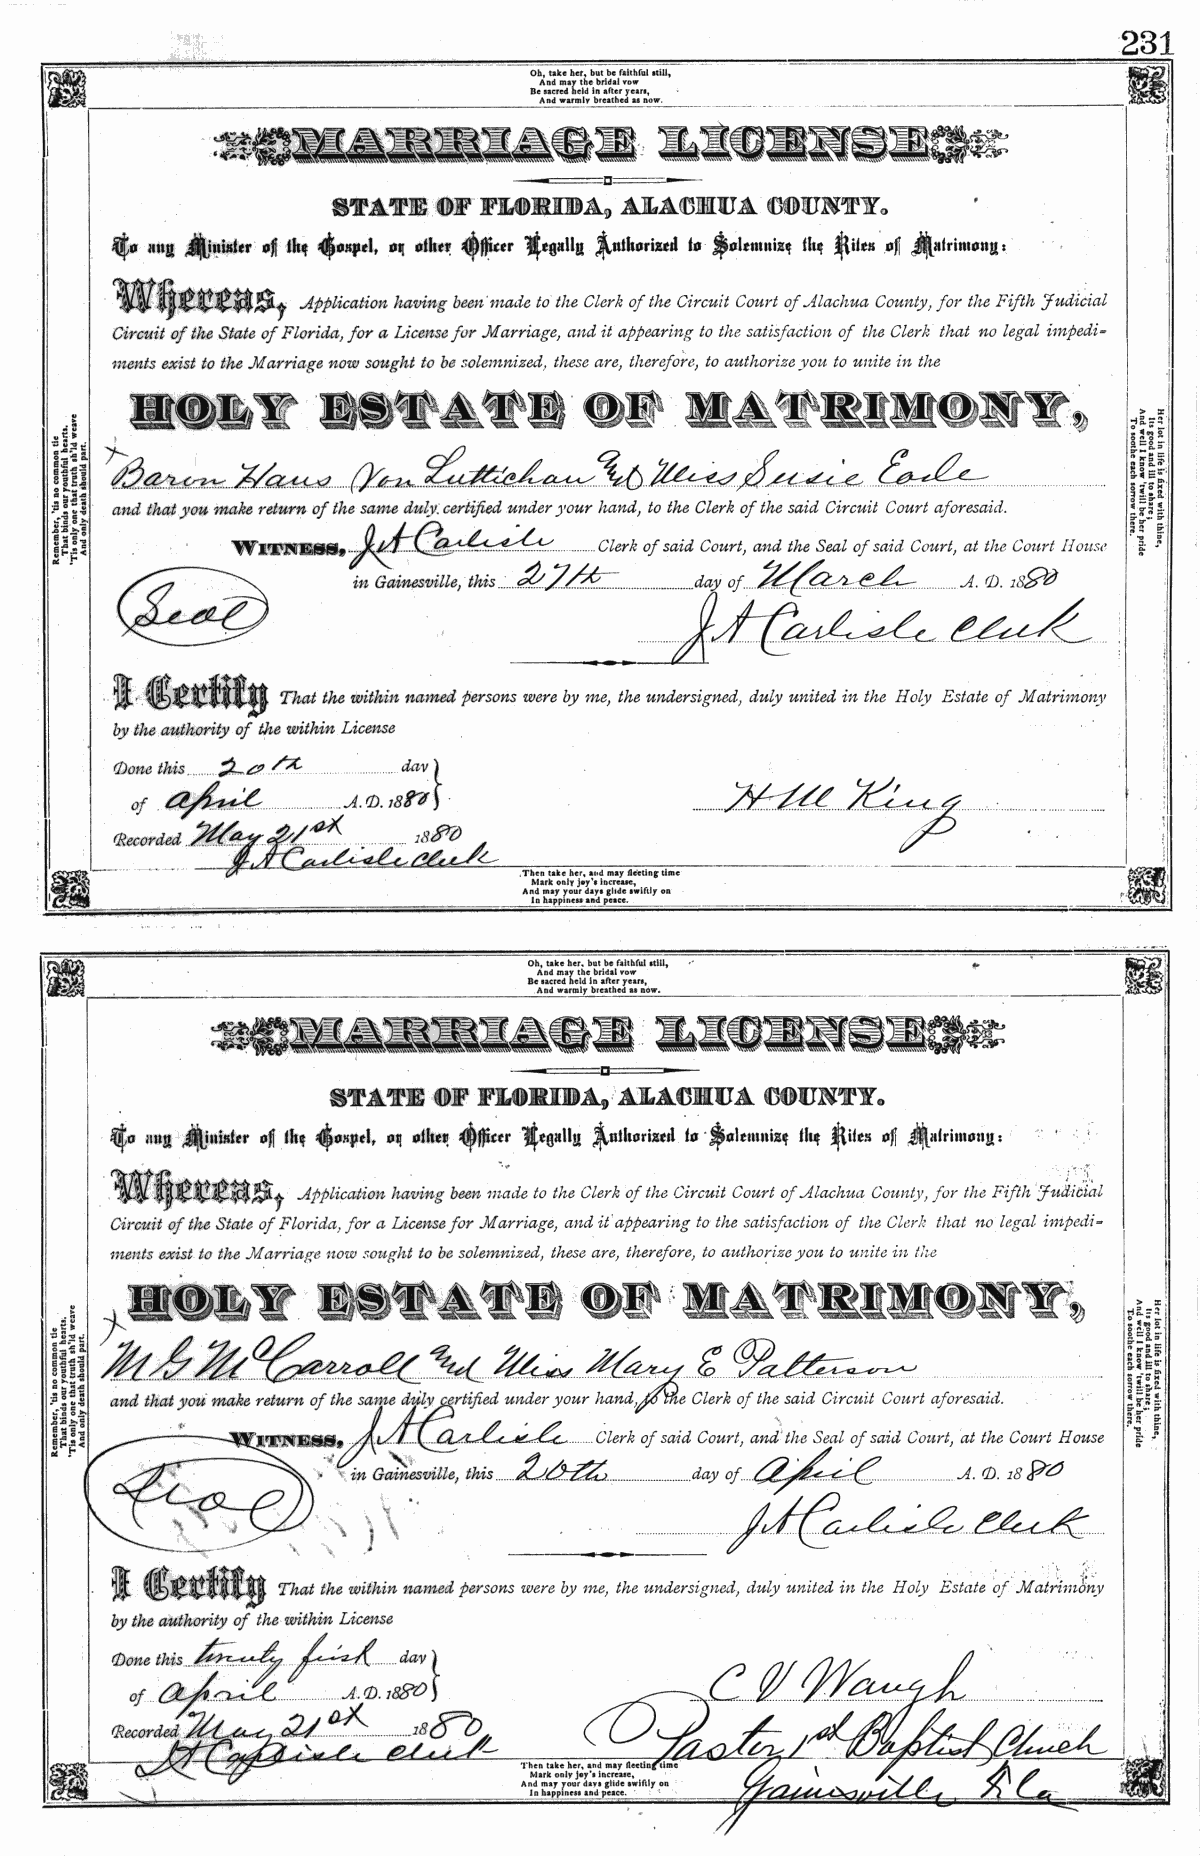 231
Oh, take her, but be faithful still,
And may the bridal vow
Be sacred held in after years,
And warmly breathed as now.
MARRIAGE LICENSE
STATE OF FLORIDA, ALACHUA COUNTY.
To any Minister of the Gospel, or other Officer Legally Authorized to Solemnize the Rites of Matrimony:
Whereas, Application having been made to the Clerk of the Circuit Court of Alachua County, for the Fifth Judicial
Circuit of the State of Florida, for a License for Marriage, and it appearing to the satisfaction of the Clerk that no legal impedi-
ments exist to the Marriage now sought to be solemnized, these are, therefore, to authorize you to unite in the
HOLY ESTATE OF MATRIMONY,
Baron Hans Von Luttichau and Miss Susie Eode
and that you make return of the same duly certified under your hand, to the Clerk of the said Circuit Court aforesaid.
WITNESS, J A Carlisle Clerk of said Court, and the Seal of said Court, at the Court House
in Gainesville, this 27th day of March A. D. 1880
Seal
J A Carlisle Clerk
I Certify That the within named persons were by me, the undersigned, duly united in the Holy Estate of Matrimony
by the authority of the within License
Done this 20th day
of April A. D. 1880
H M King
Recorded May 21st 1880
J A Carlisle Clerk
Remember, 'tis no common tie
That binds our youthful hearts.
'Tis only one that truth sh'ld weave
And only death should part.
Her lot in life is fixed with thine,
Its good and ill to share;
And well I know 'twill be her pride
To soothe each sorrow there.
Then take her, and may fleeting time
Mark only joy's increase,
And may your days glide swiftly on
In happiness and peace.
Oh, take her, but be faithful still,
And may the bridal vow
Be sacred held in after years,
And warmly breathed as now.
MARRIAGE LICENSE
STATE OF FLORIDA, ALACHUA COUNTY.
To any Minister of the Gospel, or other Officer Legally Authorized to Solemnize the Rites of Matrimony:
Whereas, Application having been made to the Clerk of the Circuit Court of Alachua County, for the Fifth Judicial
Circuit of the State of Florida, for a License for Marriage, and it appearing to the satisfaction of the Clerk that no legal impedi-
ments exist to the Marriage now sought to be solemnized, these are, therefore, to authorize you to unite in the
HOLY ESTATE OF MATRIMONY,
M G McCarroll and Miss Mary E Patterson
and that you make return of the same duly certified under your hand, to the Clerk of the said Circuit Court aforesaid.
WITNESS, J A Carlisle Clerk of said Court, and the Seal of said Court, at the Court House
in Gainesville, this 20th day of April A. D. 1880
Seal
J A Carlisle Clerk
I Certify That the within named persons were by me, the undersigned, duly united in the Holy Estate of Matrimony
by the authority of the within License
Done this twenty first day
of April A. D. 1880
C V Waugh
Recorded May 21st 1880
Pastor 1st Baptist Church
J A Carlisle Clerk
Gainesville Fla
Remember, 'tis no common tie
That binds our youthful hearts.
'Tis only one that truth sh'ld weave
And only death should part.
Her lot in life is fixed with thine,
Its good and ill to share;
And well I know 'twill be her pride
To soothe each sorrow there.
Then take her, and may fleeting time
Mark only joy's increase,
And may your days glide swiftly on
In happiness and peace.